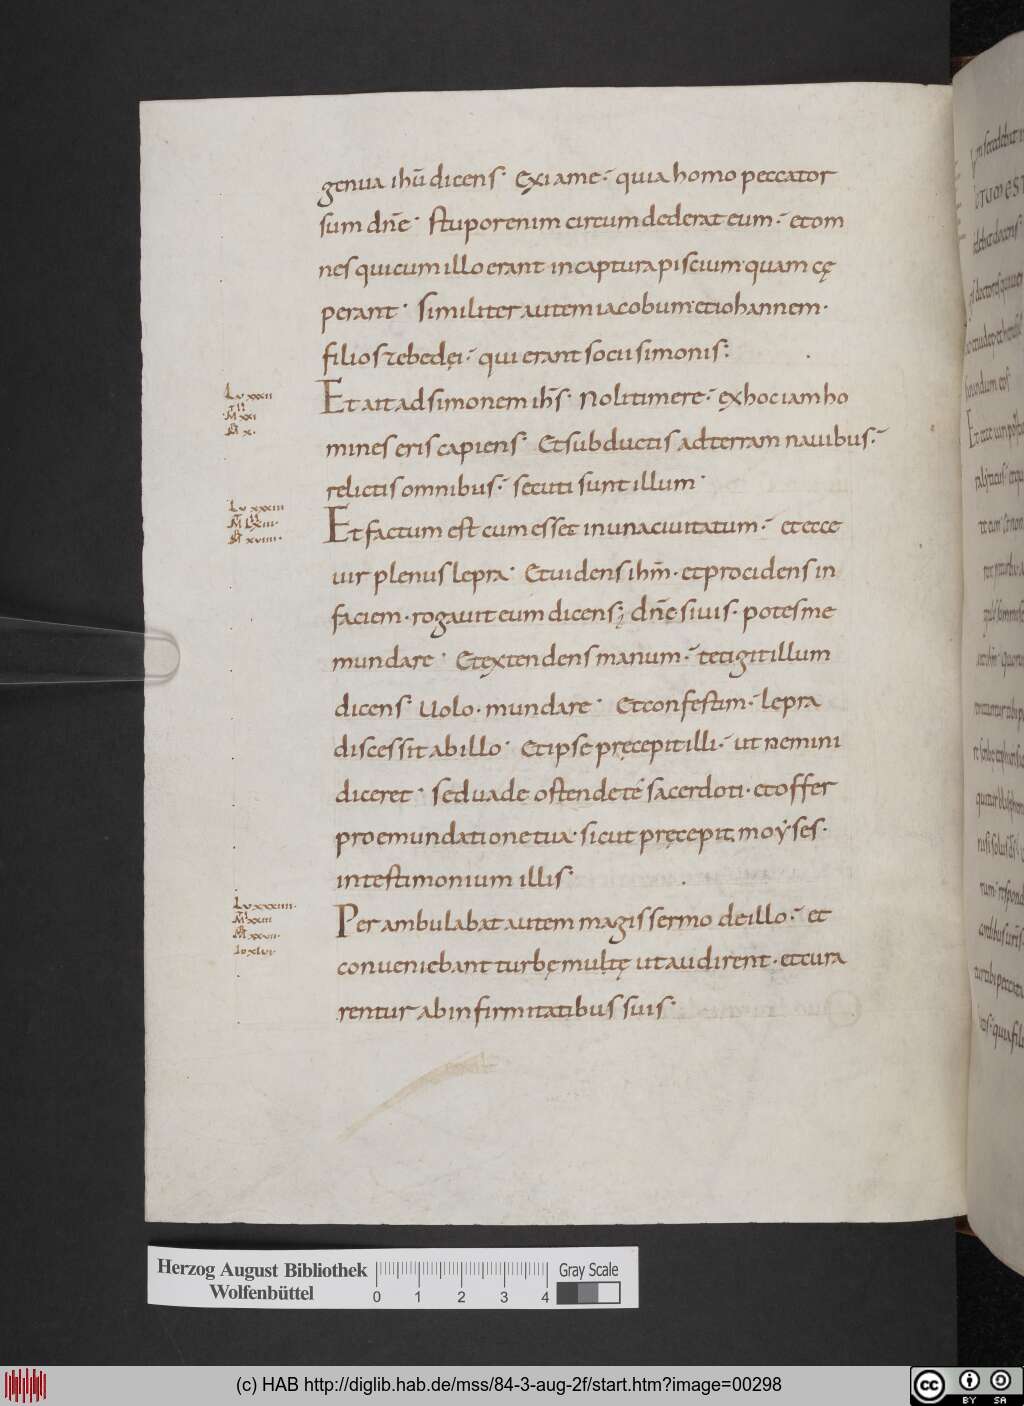 genua ihū dicens· Exi a me· quia homo peccator
sum dnē· stupor enim circumdederat eum· et om
nes qui cum illo erant in captura piscium· quam cę
perant· similiter autem iacobum· et iohannem·
filios zebedęi· qui erant socii simonis:
Lu xxxii
M xxi
Mr x·
Et ait ad simonem ihs̄· Noli timere· ęx hoc iam ho
mines eris capiens· Et subductis ad terram nauibus·
relictis omnibus· secuti sunt illum·
Lu xxxiii
M lxiii·
Mr xviiii·
Et factum est cum esset in una ciuitatum· et ecce
uir plenus lepra· Et uidens ihm̄· et procidens in
faciem· rogauit eum dicens; dnē si uis· potes me
mundare· Et extendens manum· tetigit illum
dicens· Uolo· mundare· Et confestim· lepra
discessit ab illo· Et ipse pręcepit illi· ut nemini
diceret· sed uade ostende té sacerdoti· et offer
pro emundatione tua· sicut pręcepit moẏses·
in testimonium illis·
Lu xxxiiii·
M xxiii
Mr xxvii·
Io xlvi·
Perambulabat autem magis sermo de illo· et
conueniebant turbę multę ut audirent· et cura
rentur ab infirmitatibus suis·
Herzog August Bibliothek
Wolfenbüttel
0 1 2 3 4
Gray Scale
(c) HAB http://diglib.hab.de/mss/84-3-aug-2f/start.htm?image=00298
cc BY SA